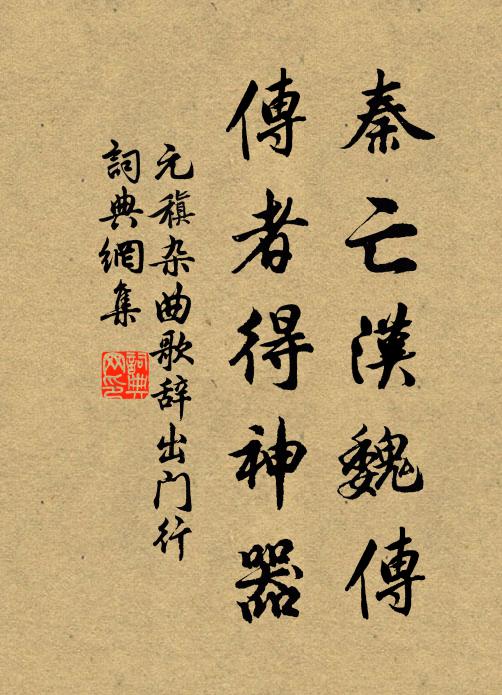 秦亡漢魏傳
傳者得神器
元稹杂曲歌辞出门行
詞典網集
詞典网印